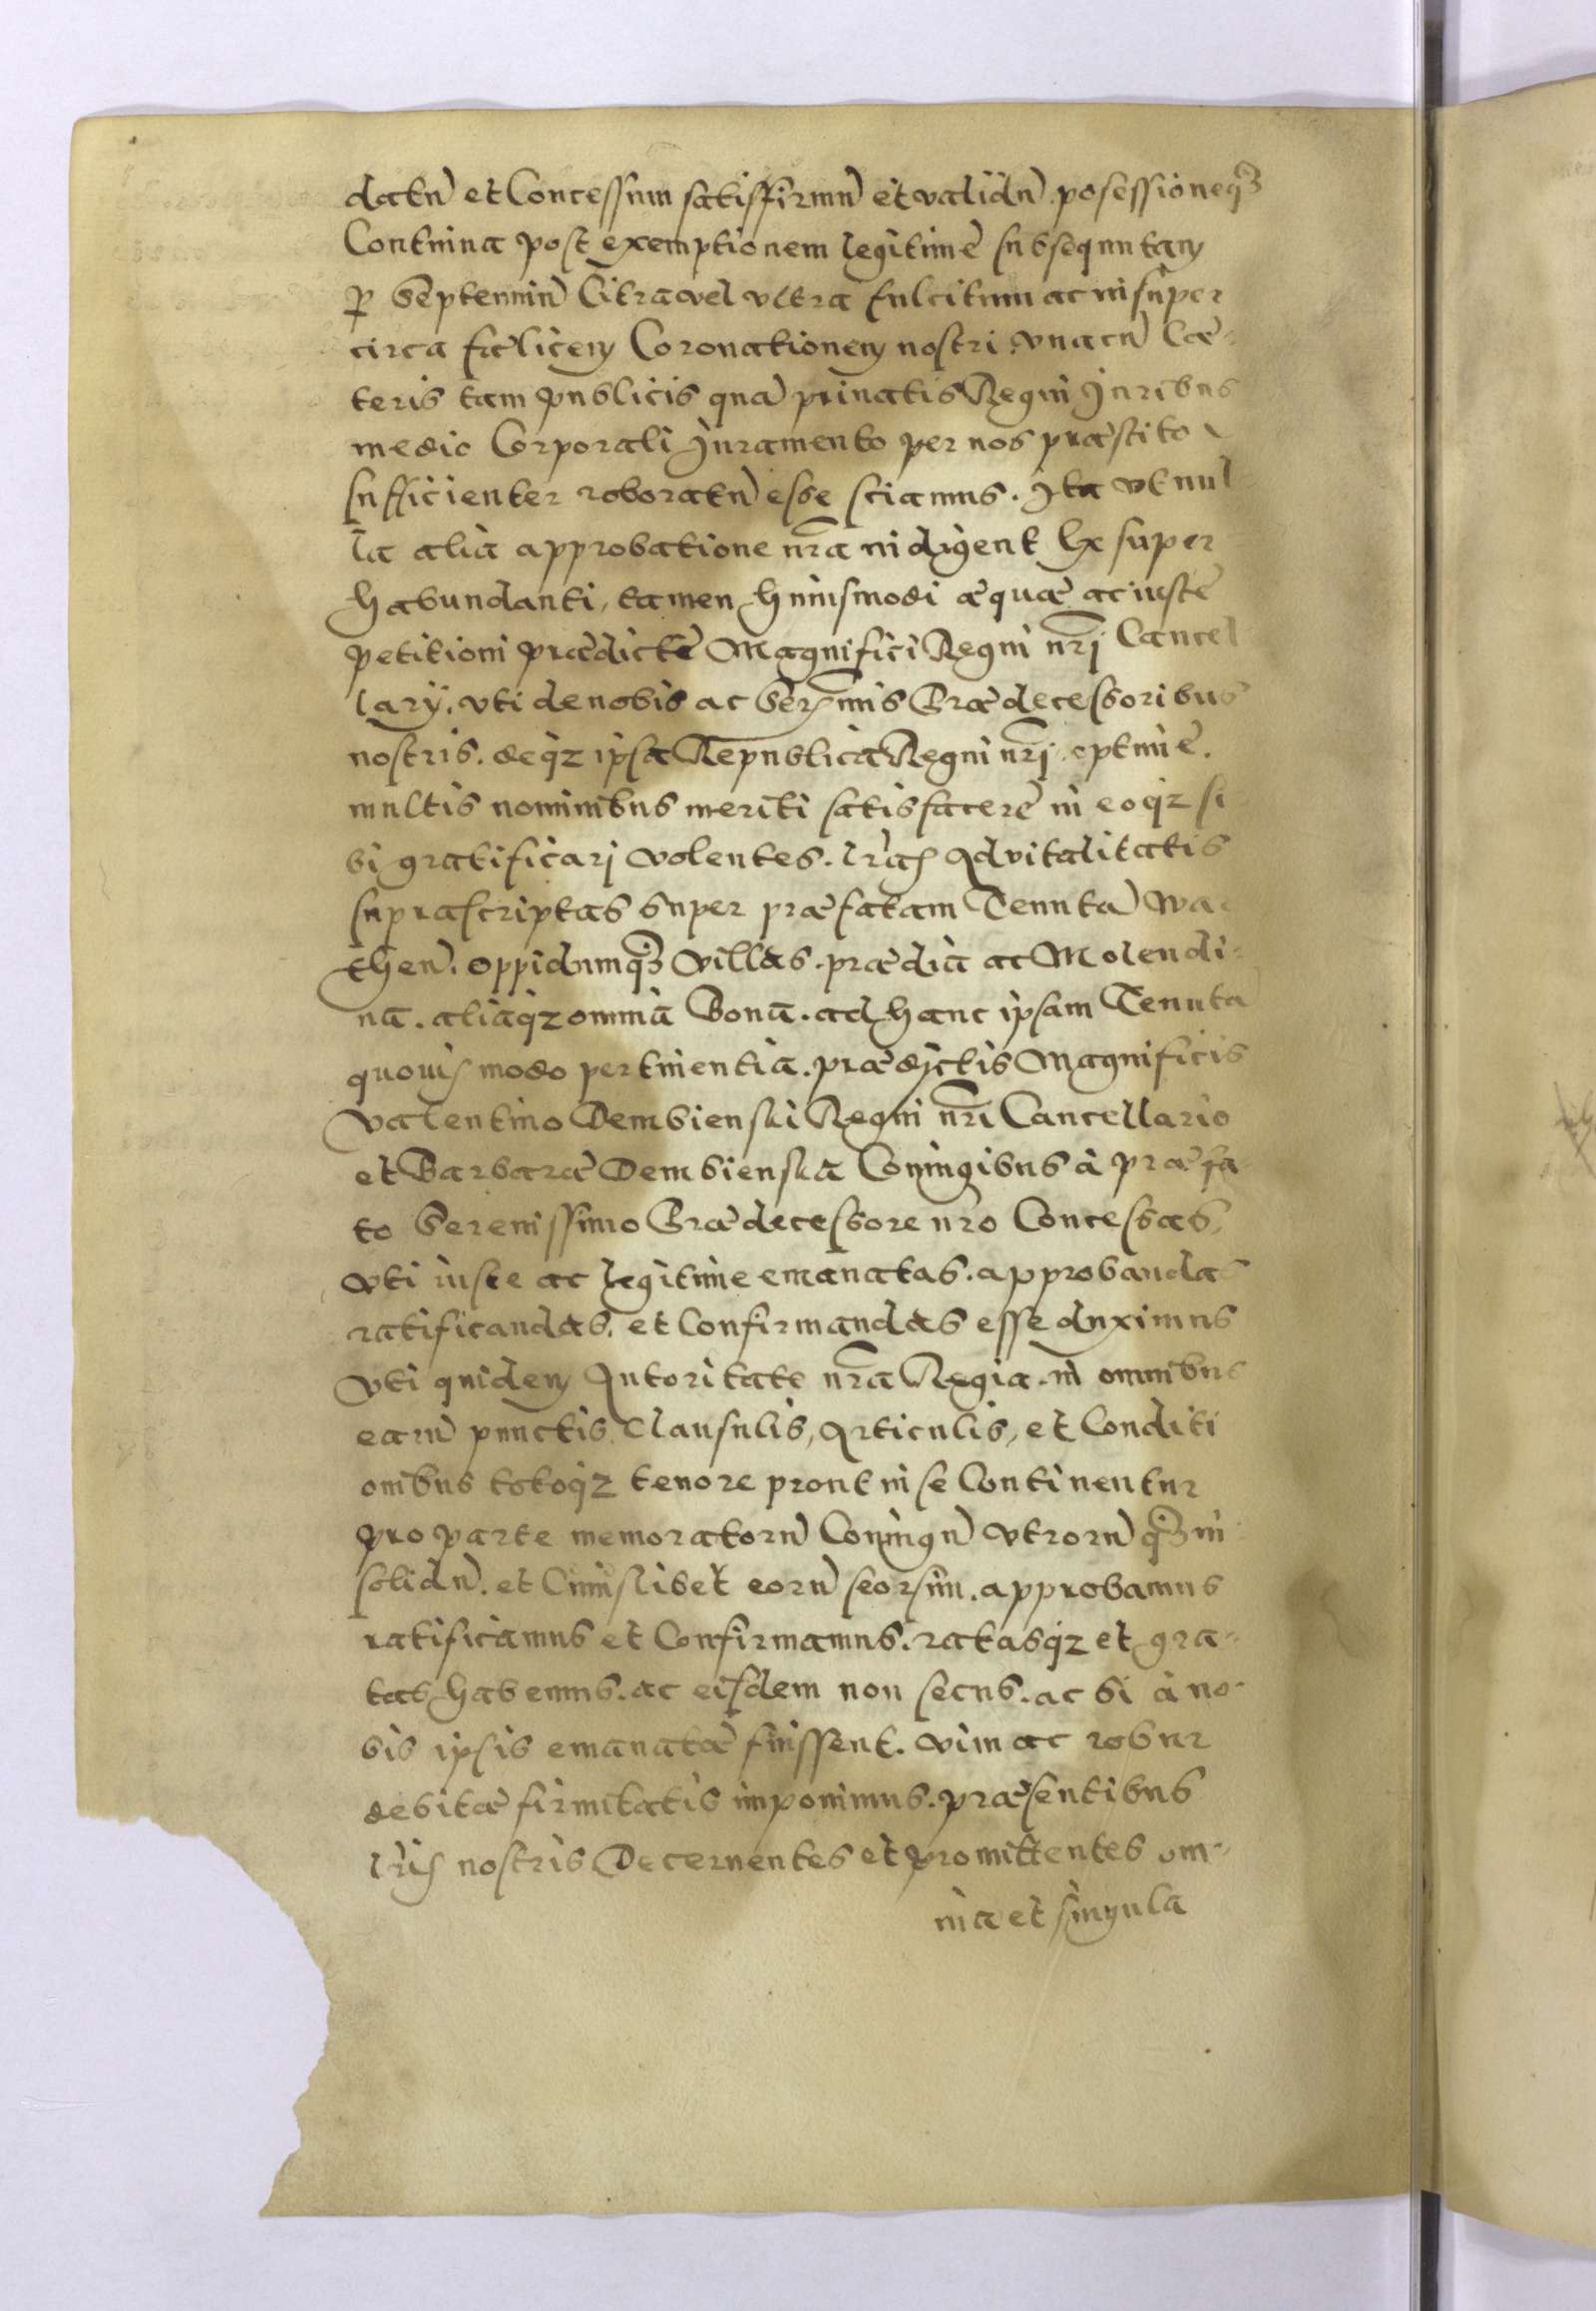 datū et Concessum satisfirmū et validū. posessioneq3
Continua post exemptionem legitimè subsequutam
ꝑ Septenniū Citra vel vltra fulcitum ac insuper
circa fælicem Coronationem nostri vnacū Cæ-
teris tam publicis quā priuatis Regni Iuribus
medio Corporali Iuramento per nos præstito
sufficienter roboratū esse sciamus. Ita vt nul
la alia approbatione nr̃a indigent Ex super
habundanti, tamen huiusmodi æquæ ac iustæ
petitioni prædictè Magnifici Regni nr̃j Cancel
larÿ. vti de nobis ac Serenmis Prædecessoribus
nostris. deqz ipsa Republica Regni nr̃j. optimè.
multis nominibus meriti satisfacere in eoqz si
bi gratificarj volentes. lr̃as Aduitalitatis
suprascriptas super præfatam Tenutā Wa
then̄. oppidumq3 Villas. prædia ac Molendi-
na. aliaqz omnia Bona. ad hanc ipsam Tenutā
quouis modo pertinentia. prædictis Magnificis
Valentino Dembienski Regni nr̃i Cancellario
et Barbaræ Dembienska Coniugibus à præfa-
to Serenissimo Prædecessore nr̃o Concessas,
vti iuste ac legitime emanatas. approbandas
ratificandas. et Confirmandas esse duximus
Vti quidem Autoritate nr̃a Regia. in omnibus
earū punctis, Clausulis, Articulis, et Conditi
onibus totoqz tenore prout in se Continentur
pro parte memoratorū Coniugū vtrorū q3 in
solidū. et Cuiuslibet eorū seorsim. approbamus
ratificamus et Confirmamus. ratasqz et gra-
tas habemus. ac eisdem non secus. ac si à no-
bis ipsis emanatæ fuissent. vim ac robur
debitæ firmitatis imponimus. præsentibus
lr̃is nostris Decernentes et promittentes om-
nia et singula